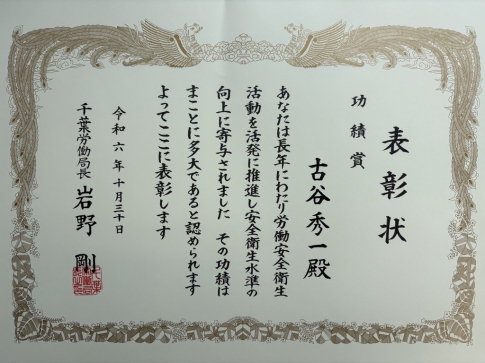 表彰状
功績賞
古谷秀一殿
あなたは長年にわたり労働安全衛生
活動を活発に推進し安全衛生水準の
向上に寄与されました その功績は
まことに多大であると認められます
よってここに表彰します
令和六年十月三十日
千葉労働局長 岩野 剛